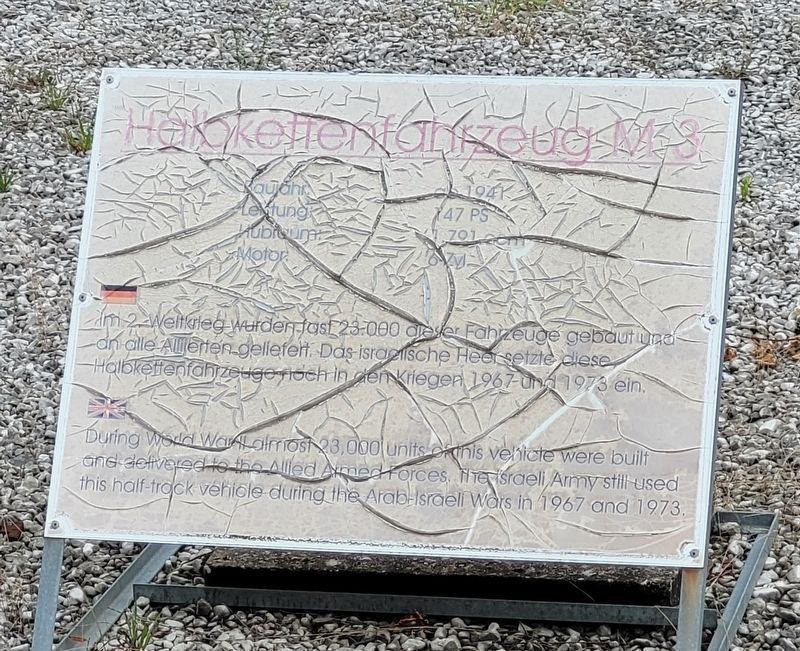 Halbkettenfahrzeug M 3
Baujahr: 1941
Leistung: 147 PS
Hubraum:
Motor: 6 Zyl
Im 2. Weltkrieg wurden fast 23.000 dieser Fahrzeuge gebaut und
an alle Alliierten geliefert. Das israelische Heer setzte diese
Halbkettenfahrzeuge noch in den Kriegen 1967 und 1973 ein.
During World War II almost 23,000 units of this vehicle were built
and delivered to the Allied Armed Forces. The Israeli Army still used
this half-track vehicle during the Arab-Israeli Wars in 1967 and 1973.